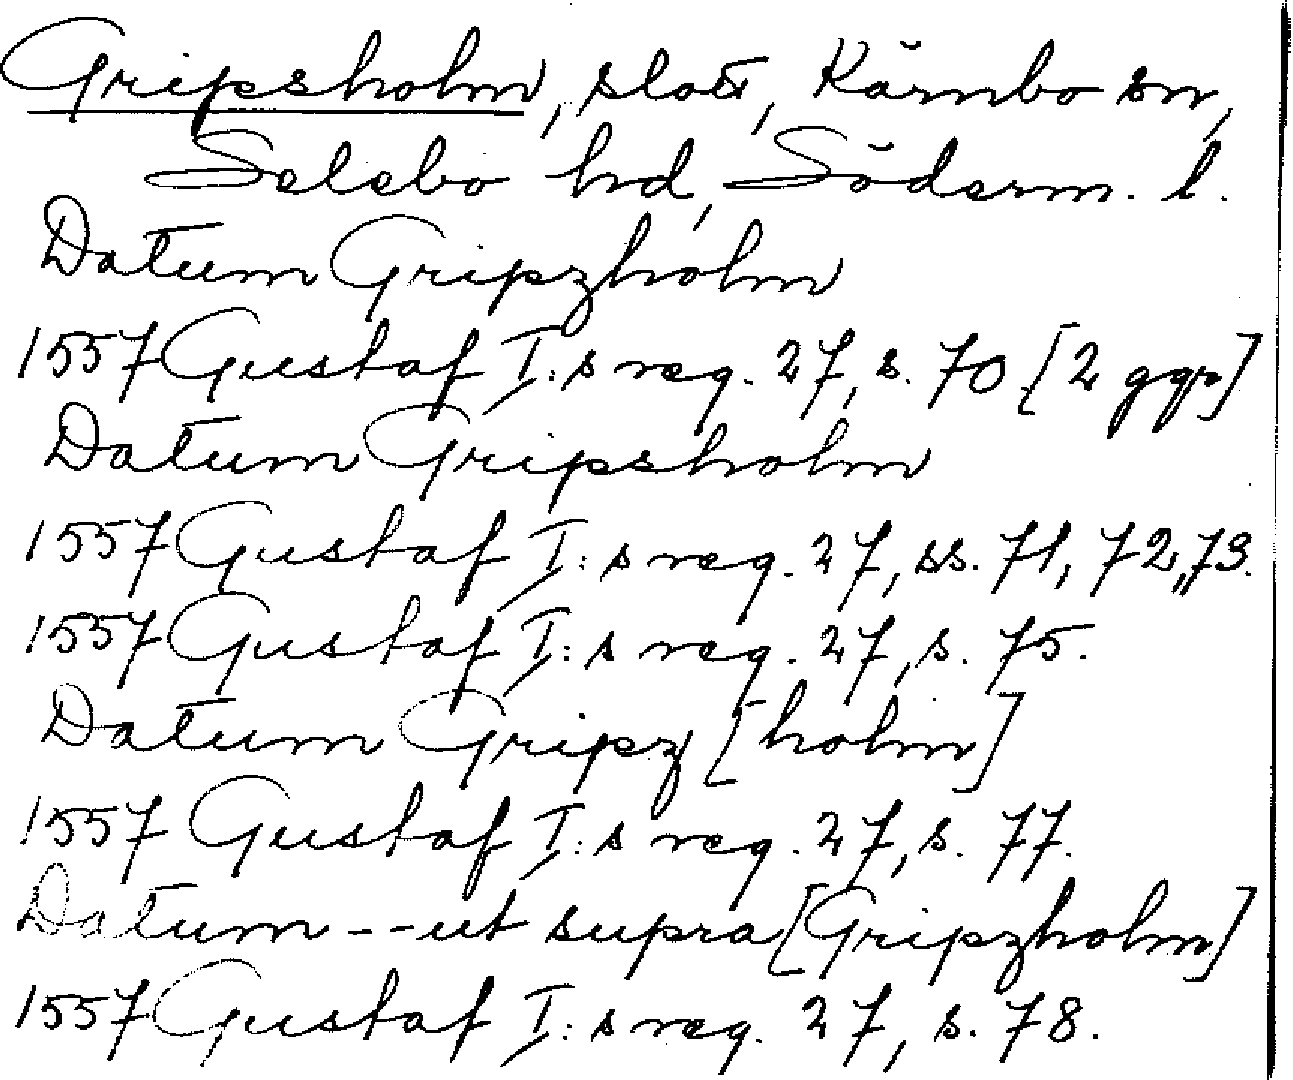 Gripsholm, slott, Kärnbo sn,
Selebo hd, Söderm. l.
Datum Gripzholm
1557 Gustaf I:s reg. 27, s. 70 [2 ggr]
Datum Gripsholm
1557 Gustaf I:s reg. 27, ss. 71, 72, 73.
1557 Gustaf I:s reg. 27, s. 75.
Datum Gripz[holm]
1557 Gustaf I:s reg. 27, s. 77.
Datum -- ut supra [Gripzholm]
1557 Gustaf I:s reg. 27, s. 78.